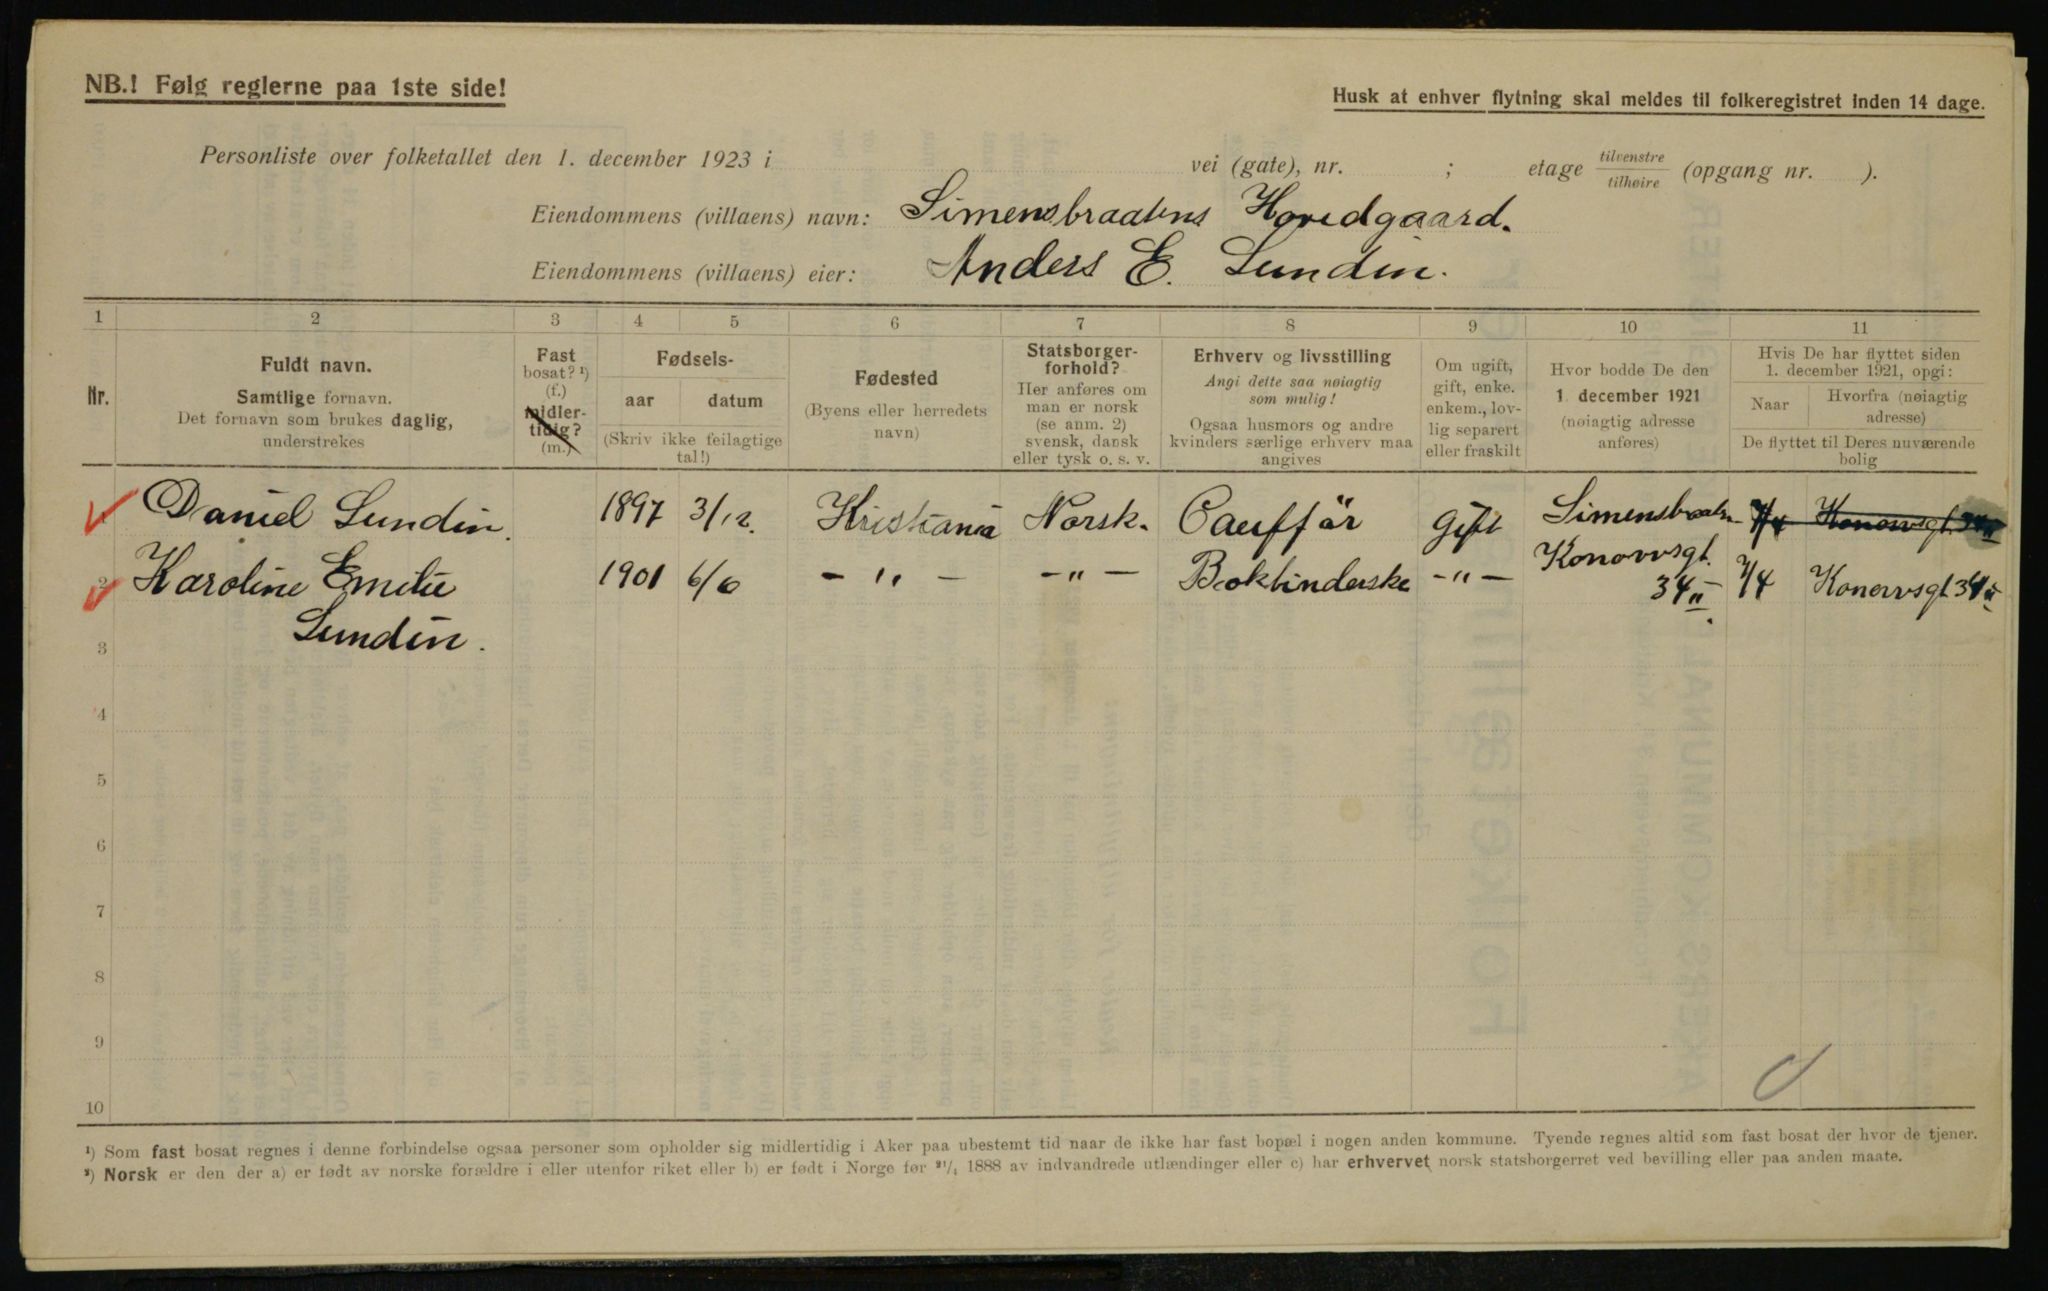 NB.! Følg reglerne paa 1ste side!
Husk at enhver flytning skal meldes til folkeregistret inden 14 dage.
Personliste over folketallet den 1. december 1923 i vei (gate), nr. ; etage tilvenstre/tilhøire (opgang nr. ).
Eiendommens (villaens) navn: Simensbraatens Hovedgaard.
Eiendommens (villaens) eier: Anders E. Lundin.
1 2 3 4 5 6 7 8 9 10 11
Nr.
Fuldt navn.
Samtlige fornavn.
Det fornavn som brukes daglig,
understrekes
Fast
bosat? ¹)
(f.)
midler-
tidig?
(m.)
Fødsels-
aar datum
(Skriv ikke feilagtige
tal!)
Fødested
(Byens eller herredets
navn)
Statsborger-
forhold?
Her anføres om
man er norsk
(se anm. 2)
svensk, dansk
eller tysk o. s. v.
Erhverv og livsstilling
Angi dette saa nøiagtig
som mulig!
Ogsaa husmors og andre
kvinders særlige erhverv maa
angives
Om ugift,
gift, enke.
enkem., lov-
lig separert
eller fraskilt
Hvor bodde De den
1 december 1921
(nøiagtig adresse
anføres)
Hvis De har flyttet siden
1. december 1921, opgi:
Naar
Hvorfra (nøiagtig
adresse)
De flyttet til Deres nuværende
bolig
1 Daniel Lundin. 1897 3/12. Kristiania Norsk. Cauffär Gift Simensbraaten 1/4 Konowsgt. 34 II
2 Karoline Emilie 1901 6/6 - " - - " - Bokbinderske - " - Konowsgt. 34 II. 1/4 Konowsgt 34 II
Lundin.
3
4
5
6
7
8
9
10
¹) Som fast bosat regnes i denne forbindelse ogsaa personer som opholder sig midlertidig i Aker paa ubestemt tid naar de ikke har fast bopæl i nogen anden kommune. Tyende regnes altid som fast bosat der hvor de tjener.
²) Norsk er den der a) er født av norske forældre i eller utenfor riket eller b) er født i Norge før ²¹/₄ 1888 av indvandrede utlændinger eller c) har erhvervet norsk statsborgerret ved bevilling eller paa anden maate.